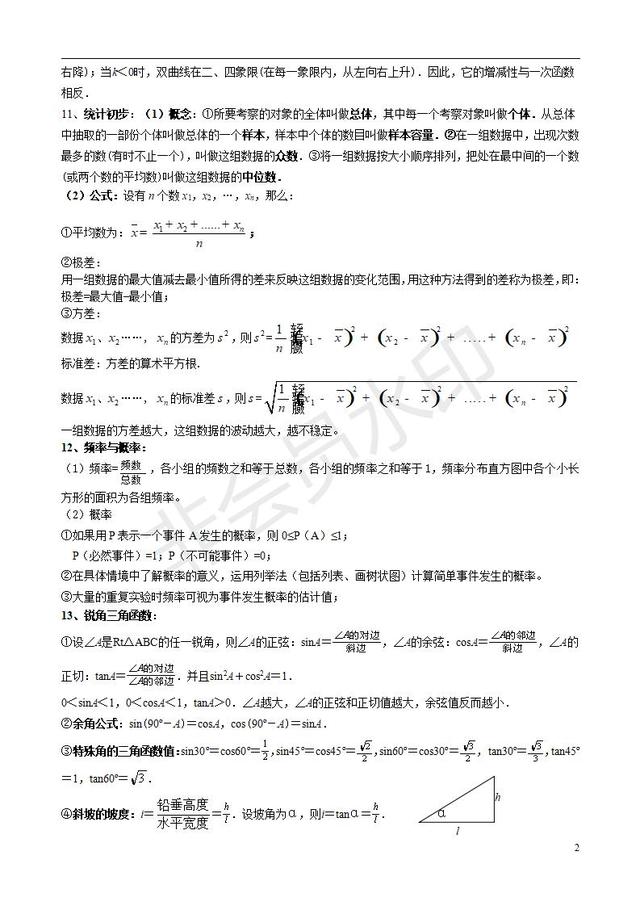 右降)；当k＜0时，双曲线在二、四象限(在每一象限内，从左向右上升)．因此，它的增减性与一次函数
相反．
11、统计初步：(1)概念：①所要考察的对象的全体叫做总体，其中每一个考察对象叫做个体．从总体
中抽取的一部份个体叫做总体的一个样本，样本中个体的数目叫做样本容量．②在一组数据中，出现次数
最多的数(有时不止一个)，叫做这组数据的众数．③将一组数据按大小顺序排列，把处在最中间的一个数
(或两个数的平均数)叫做这组数据的中位数．
(2)公式：设有n个数x₁，x₂，…，xₙ，那么：
①平均数为：x̄ = (x₁ + x₂ + ...... + xₙ)/n；
②极差：
用一组数据的最大值减去最小值所得的差来反映这组数据的变化范围，用这种方法得到的差称为极差，即：
极差=最大值-最小值；
③方差：
数据x₁、x₂……，xₙ的方差为s²，则s²=1/n (x₁ - x̄)² + (x₂ - x̄)² + ..... + (xₙ - x̄)²
标准差：方差的算术平方根．
数据x₁、x₂……，xₙ的标准差s，则s=√1/n (x₁ - x̄)² + (x₂ - x̄)² + ..... + (xₙ - x̄)²
一组数据的方差越大，这组数据的波动越大，越不稳定。
12、频率与概率：
(1)频率=频数/总数，各小组的频数之和等于总数，各小组的频率之和等于1，频率分布直方图中各个小长
方形的面积为各组频率。
(2)概率
①如果用P表示一个事件A发生的概率，则0≤P(A)≤1；
P(必然事件)=1；P(不可能事件)=0；
②在具体情境中了解概率的意义，运用列举法(包括列表、画树状图)计算简单事件发生的概率。
③大量的重复实验时频率可视为事件发生概率的估计值；
13、锐角三角函数：
①设∠A是Rt△ABC的任一锐角，则∠A的正弦：sinA＝∠A的对边/斜边，∠A的余弦：cosA＝∠A的邻边/斜边，∠A的
正切：tanA＝∠A的对边/∠A的邻边．并且sin²A＋cos²A＝1．
0＜sinA＜1，0＜cosA＜1，tanA＞0．∠A越大，∠A的正弦和正切值越大，余弦值反而越小．
②余角公式：sin(90º－A)＝cosA，cos(90º－A)＝sinA．
③特殊角的三角函数值：sin30º＝cos60º＝1/2，sin45º＝cos45º＝√2/2，sin60º＝cos30º＝√3/2，tan30º＝√3/3，tan45º
＝1，tan60º＝√3．
④斜坡的坡度：i＝铅垂高度/水平宽度＝h/l．设坡角为α，则i＝tanα＝h/l．
h
α
l
2
非会员水印